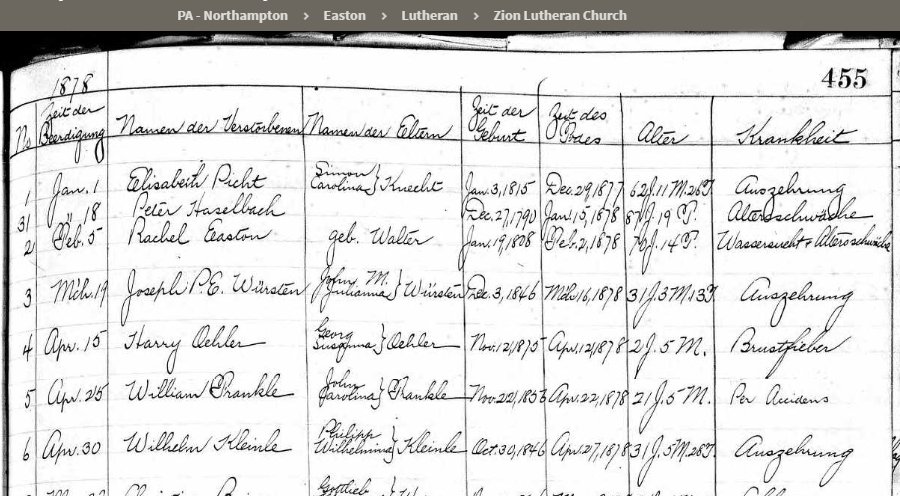 PA - Northampton › Easton › Lutheran › Zion Lutheran Church
455
1878
No Zeit der Beerdigung Namen der Verstorbenen Namen der Eltern Zeit der Geburt Zeit des Todes Alter Krankheit
1 Jan. 1 Elisabeth Picht Simon Carolina } Knecht Jan. 3, 1815 Dec. 29, 1877 62 J. 11 M. 26 T. Auszehrung
31 " 18 Peter Haselbach Dec. 27, 1790 Jan. 15, 1878 87 J. 19 T. Altersschwäche
2 Feb. 5 Rachel Easton geb. Walter Jan. 19, 1808 Feb. 2, 1878 70 J. 14 T. Wassersucht + Altersschwäche
3 Möh. 19 Joseph P. E. Würsten John M. Julianna } Würsten Dec. 3, 1846 Möh. 16, 1878 31 J. 3 M. 13 T. Auszehrung
4 Apr. 15 Harry Oehler Georg Susanna } Oehler Nov. 12, 1875 Apr. 12, 1878 2 J. 5 M. Brustfieber
5 Apr. 25 William Frankle John Carolina } Frankle Nov. 22, 1856 Apr. 22, 1878 21 J. 5 M. Per Accidens
6 Apr. 30 Wilhelm Kleinle Philipp Wilhelmina } Kleinle Oct. 30, 1846 Apr. 27, 1878 31 J. 5 M. 28 T. Auszehrung
Gottlieb